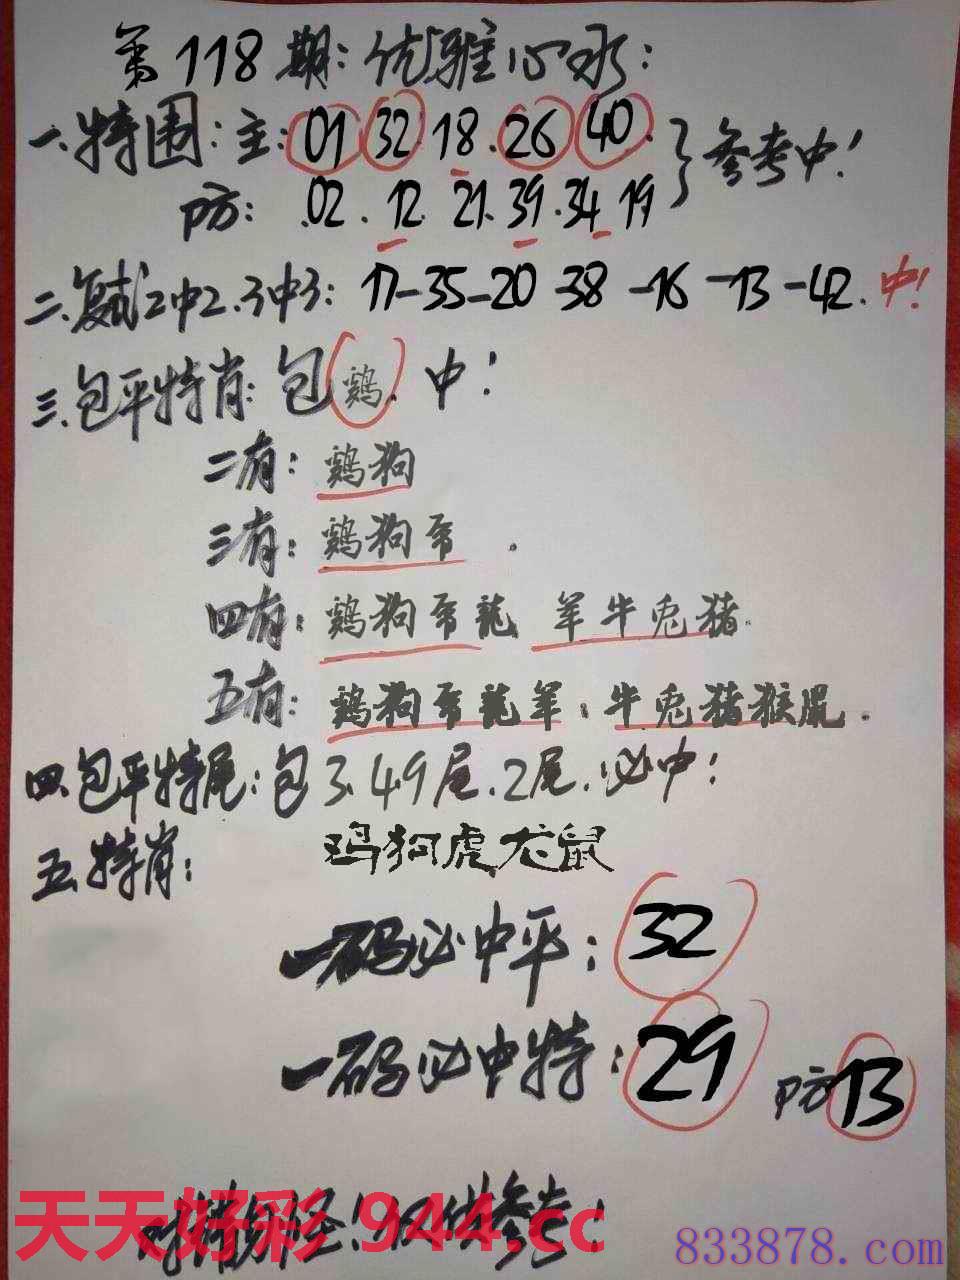 第118期:优雅心水:
一.特围:主:01 32 18.26 40.
防: .02.12 21.39.34 19
参考中!
二.复式2中2.3中3: 17-35-20 38-16-13-42.中!
三.包平特肖:包鸡.中!
二有: 鸡狗
三有: 鸡狗虎.
四有: 鸡狗虎龍 羊牛兎猪.
五有: 鸡狗虎龍羊:牛兎猪猴鼠.
四.包平特尾:包3.4.9尾.2尾.必中!
五.特肖: 鸡狗虎龙鼠
一码必中平: 32
一码必中特: 29 防13
供参考!
天天好彩 944.cc
833878.com